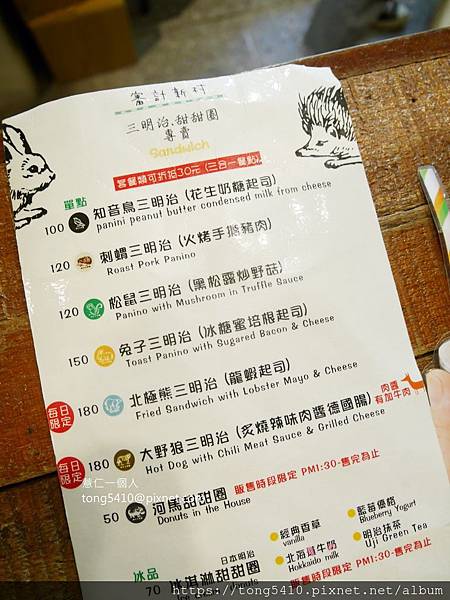 審計新村
三明治、甜甜圈
專賣
Sandwich
套餐類可折抵30元 (三合一餐點)
單點
100 知音鳥三明治 (花生奶糖起司)
panini peanut butter condensed milk from cheese
120 刺蝟三明治 (火烤手撕豬肉)
Roast Pork Panino
120 松鼠三明治 (黑松露炒野菇)
Panino with Mushroom in Truffle Sauce
150 兔子三明治 (冰糖蜜培根起司)
Toast Panino with Sugared Bacon & Cheese
每日限定 180 北極熊三明治 (龍蝦起司)
Fried Sandwich with Lobster Mayo & Cheese
肉醬
有加牛肉
每日限定 180 大野狼三明治 (炙燒辣味肉醬德國腸)
Hot Dog with Chili Meat Sauce & Grilled Cheese
50 河馬甜甜圈 販售時段限定 PM1:30-售完為止
Donuts in the House
經典香草
vanilla
藍莓優格
Blueberry Yogurt
日本明治
北海道牛奶
Hokkaido milk
明治抹茶
Uji Green Tea
冰品
70 冰淇淋甜甜圈 販售時段限定 PM1:30-售完為止
薏仁一個人
tong5410@pixnet.net
https://tong5410.pixnet.net/album